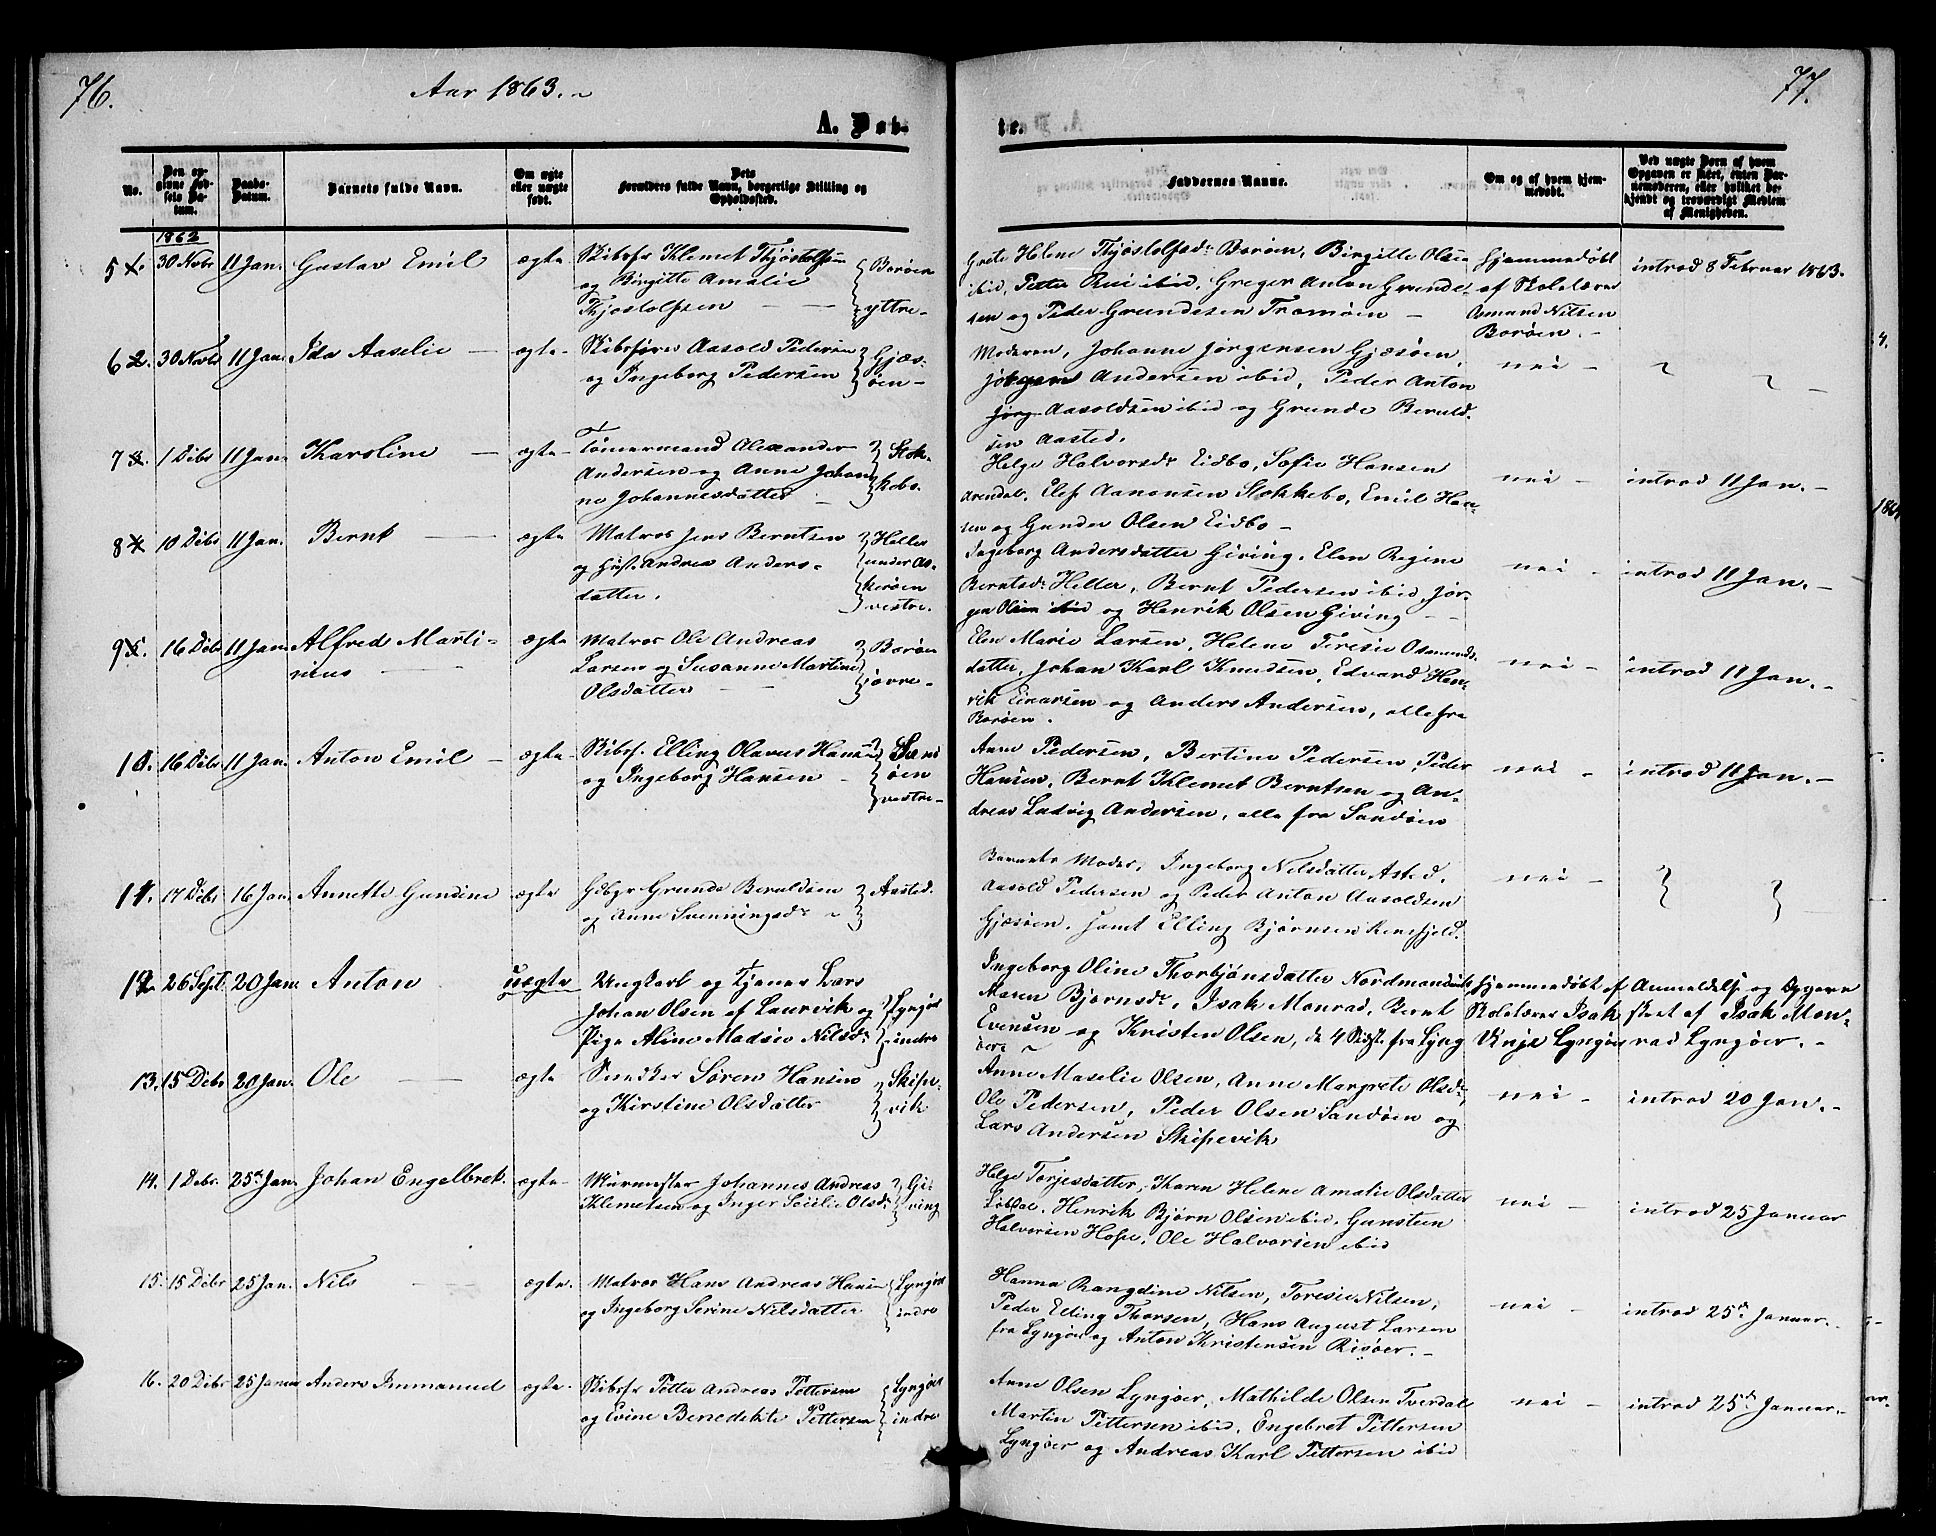 76.
Aar 1863.
77.
A. Døb-
te.
No.
Den op-
givne Fød-
sels Da-
tum.
Daabs-
Datum.
Barnets fulde Navn.
Om ægte
eller uægte
født.
Dets
Forældres fulde Navn, borgerlige Stilling og
Opholdssted.
Faddernes Navne.
Om og af hvem hjem-
medøbt.
Ved uægte Børn af hvem
Opgaven er skeet, enten Bar-
nemoderen, eller hvilket be-
kjendt og troværdigt Medlem
af Menigheden.
1862
5 30 Novbr 11 Jan. Gustav Emil ægte Skibsfr Klemet Thjøstolfsen
og Birgitte Amalie
Thjøstolfsen
Borøen
yttre
Grete Helene Thjøstolfsdr Borøen, Birgitte Olsen
ibid, Petter Rui ibid, Greger Anton Grunde-
sen og Peder Grundesen Tromøen
hjemmedøbt
af Skolelærer
Osmund Nilsen
Borøen.
introd 8 Februar 1863.
6 2. 30 Novbr 11 Jan. Ida Aaselie ægte Skibsfører Aasold Pedersen
og Ingeborg Pedersen
Gjæs-
øen
Moderen, Johanne Jørgensen Gjæsøen,
Jørgen Andersen ibid, Peder Anton
Aasoldsen ibid og Grunde Beruld-
sen Aasted.
nei
7 1 Debr 11 Jan. Karoline ægte Tømermand Olexander
Andersen og Anne Johan
ne Johannesdatter
Stok-
kebo.
Helge Halvorsdr Eidbo, Sofie Hansen
Arendal, Elef Aanonsen Stokkebo, Emil Han-
sen og Gunder Olsen Eidbo
nei introd 11 Jan.
8 10 Debr 11 Jan. Bernt ægte Matros Jens Berntsen
og Hust. Andrea Anders-
datter.
Heller
under As-
kerøen
vestre.
Ingeborg Andersdatter Giving, Elen Regine
Berntsdr Heller, Bernt Pedersen ibid, Jør-
gen Olsen ibid og Henrik Olsen Giving
nei introd 11 Jan.
9 16 Debr 11 Jan. Alfred Marti-
nius
ægte Matros Ole Andreas
Larsen og Susanne Martine
Olsdatter
Borøen
iøvre
Elen Marie Larsen, Helene Teresie Osmunds-
datter, Johan Karl Knudsen, Edvard Hen-
rik Einarsen og Anders Andersen, alle fra
Borøen.
nei introd 11 Jan.
10. 16 Debr 11 Jan. Anton Emil ægte Skibsf. Elling Olavus Hansen
og Ingeborg Hansen
Sand
øen
vestre
Anne Pedersen, Bertine Pedersen, Peder
Hansen, Bernt Klemet Berntsen og An-
dreas Ludvig Andersen, alle fra Sandøen
nei introd 11 Jan.
11. 17 Debr 16 Jan. Annette Gundine ægte Gdbgr Grunde Beruldsen
og Anne Svenningsdr
Aasted.
Barnets Moder, Ingeborg Nilsdatter Asted,
Aasold Pedersen og Peder Anton Aasoldsen
Gjæsøen, samt Elling Bjørnsen
nei
12 26 Sept. 20 Jan. Anton uægte Ungkarl og Tjener Lars
Johan Olsen af Laurvik og
Pige Aline Madsie Nilsdr
Lyngør
indre
Ingeborg Oline Thorbjønsdatter
Maren Bjørnsdr, Isak Monrad, Bernt
Evensen og Kristen Olsen, de 4 Sidst. fra Lyng
øer
hjemmedøbt af
Skolelærer Isak
Vinje Lyngøer
Anmeldelse og Opgave
skeet af Isak Mon-
rad Lyngøer.
13. 15 Debr 20 Jan. Ole ægte Snedker Søren Hansen
og Kirstine Olsdatter
Skipe-
vik
Anne Maselie Olsen, Anne Margrete Olsdr
Ole Pedersen, Peder Olsen Sandøen og
Lars Andersen Skipevik
nei introd 20 Jan.
14. 1 Debr. 25 Jan. Johan Engelbrek. ægte Muurmester Johannes Andreas
Klemetsen og Inger Seselie Olsdr
Gi-
ving
Helge Torjesdatter, Karen Helene Amalie Olsdatter
Løvdal, Henrik Bjørn Olsen ibid, Gunsteen
Halvorsen Hope, Ole Halvorsen ibid
nei introd 25 Januar
15. 15 Debr 25 Jan. Nils ægte. Matros Hans Andreas Hansen
og Ingeborg Serine Nilsdatter
Lyngør
indre
Hanna Rangdine Nilsen, Toresie Nilsen,
Peder Elling Thorsen, Hans August Larsen
fra Lyngøer og Anton Kristensen Risøer.
nei introd 25 Januar.
16. 20 Debr 25 Januar Anders Immanuel ægte Skibsfr Petter Andreas Pettersen
og Evine Benedikte Pettersen
Lyngør
indre
Anne Olsen Lyngøer, Mathilde Olsen Tverdal
Martin Pettersen ibid, Engebret Pettersen
Lyngøer og Andreas Karl Pettersen ibid
nei introd 25 Januar.